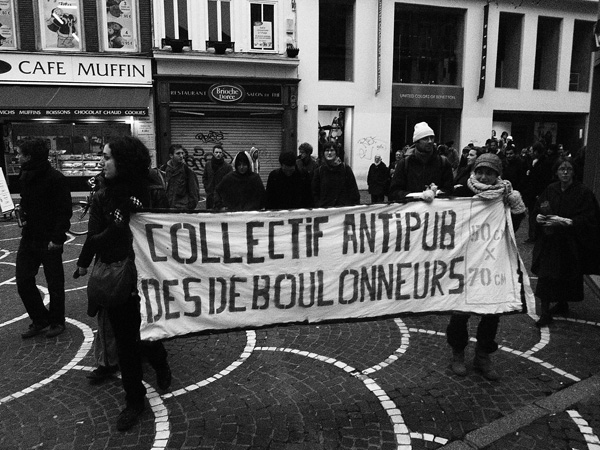 CAFE MUFFIN
WICHS MUFFINS BOISSONS CHOCOLAT CHAUD COOKIES
RESTAURANT Brioche Dorée SALON DE THE
UNITED COLORS OF BENETTON
COLLECTIF ANTIPUB
DES DÉBOULONNEURS
50 CM
X
70 CM